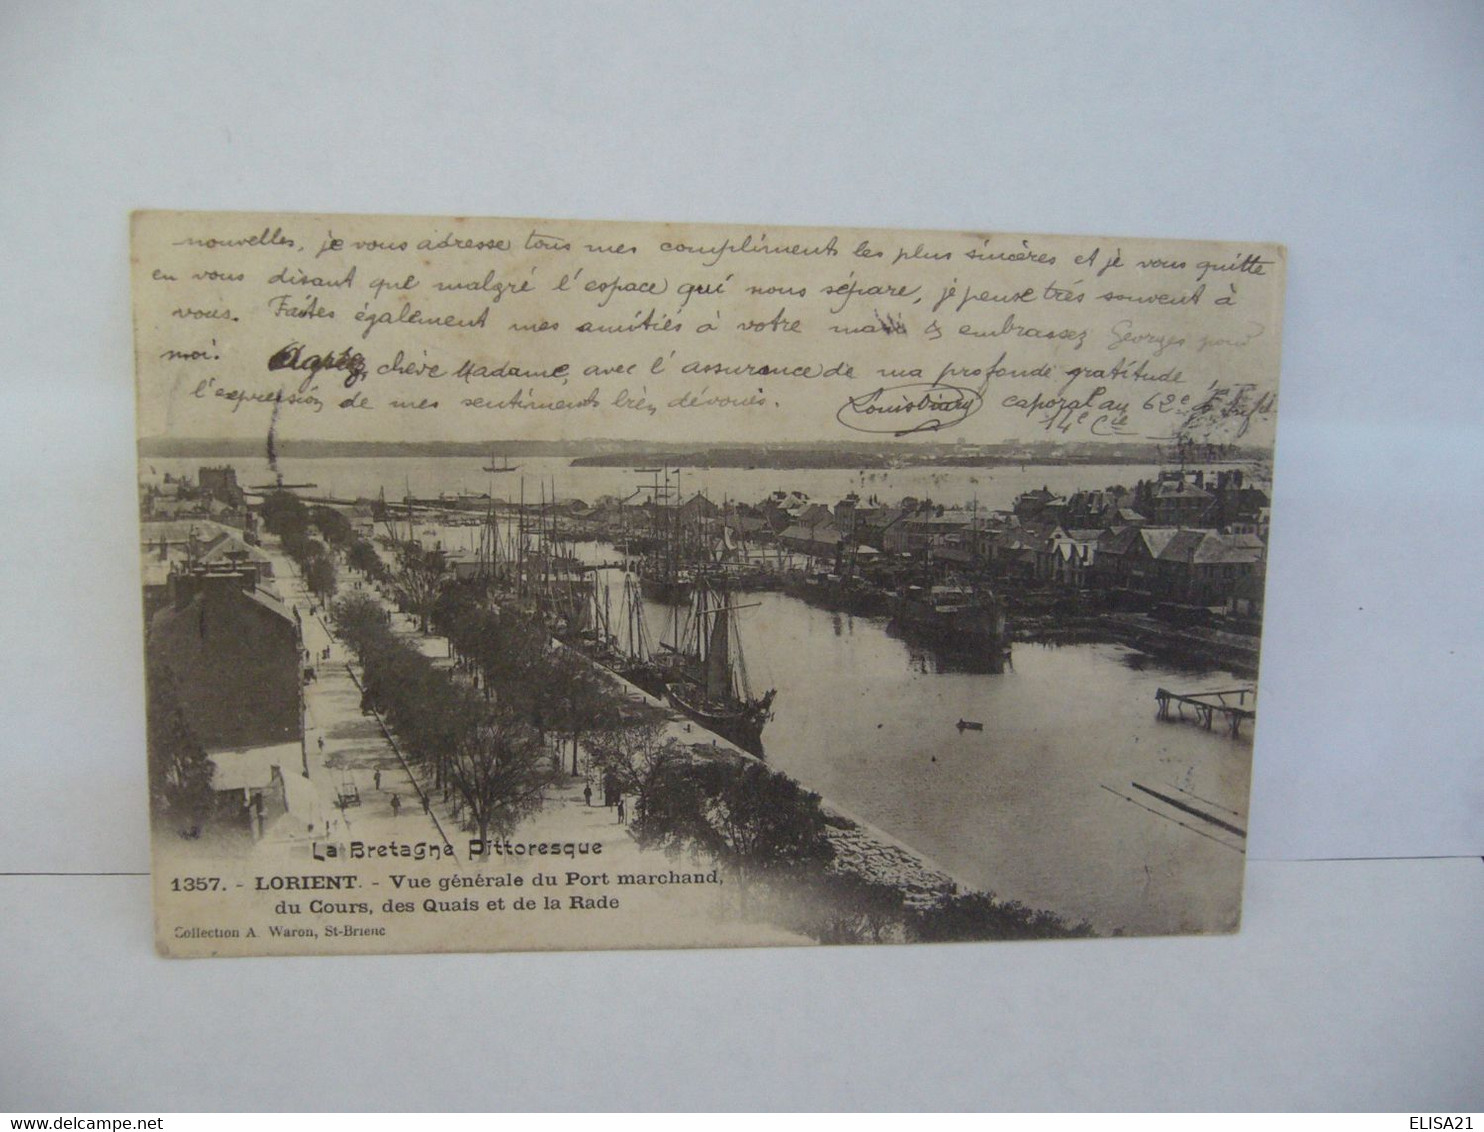 nouvelles, je vous adresse tous mes compliments les plus sincères et je vous quitte
en vous disant que malgré l'espace qui nous sépare, je pense très souvent à
vous. Faites également mes amitiés à votre mari & embrassez Georges pour
moi. Agréez, chère Madame, avec l'assurance de ma profonde gratitude
l'expression de mes sentiments bien dévoués. Louis caporal au 62e
14e Cie
La Bretagne Pittoresque
1357. - LORIENT. - Vue générale du Port marchand,
du Cours, des Quais et de la Rade
Collection A. Waron, St-Brieuc
ELISA21